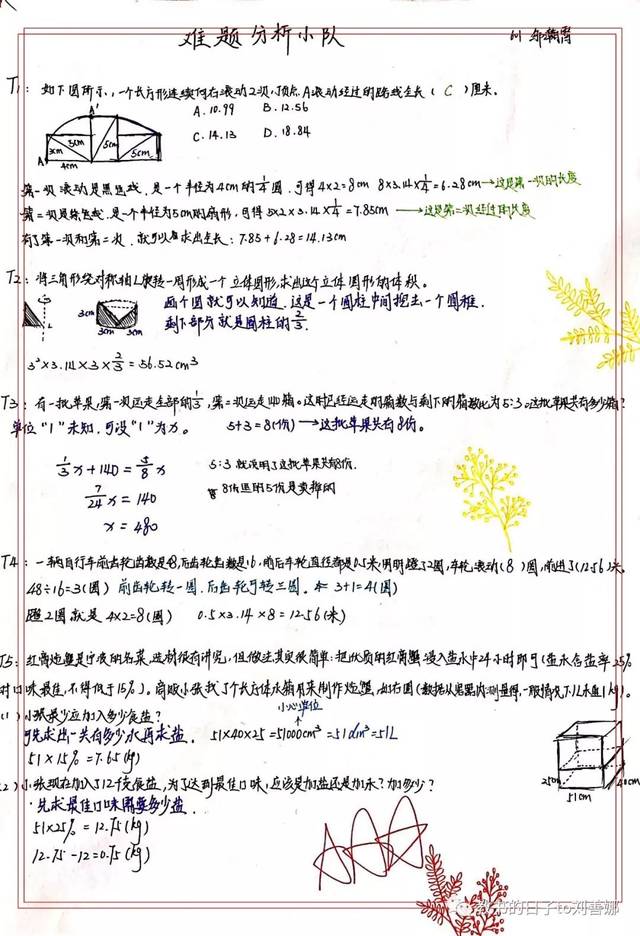 难题分析小队
T1: 如下图所示,一个长方形连续向右滚动2次,顶点A滚动经过的路线全长(C)厘米。
A. 10.99 B. 12.56
C. 14.13 D. 18.84
A'
3cm 3cm 5cm 5cm
A 4cm
第一次滚动是黑色线,是一个半径为4cm的1/4圆,可得4×2=8cm 8×3.14×1/4=6.28cm→这是第一次的长度
第二次是绿色线,是一个半径为5cm的扇形,可得5×2×3.14×1/4=7.85cm →这是第二次经过的长度
有了第一次和第二次,就可以求出全长:7.85+6.28=14.13cm
T2: 将三角形绕对称轴L旋转一周形成一个立体图形,求出这个立体图形的体积。
两个图就可以知道,这是一个圆柱中间挖去一个圆锥.
剩下部分就是圆柱的2/3.
L 3cm 3cm 3cm
3²×3.14×3×2/3=56.52cm³
T3: 有一批苹果,第一次运走全部的1/3,第二次运走140箱。这时已经运走的箱数与剩下的箱数比为5:3。这批苹果共有多少箱?
单位“1”未知,可设“1”为x。 5+3=8(份)→这批苹果共有8份。
1/3x+140=5/8x 5:3就说明了这批苹果共8份.
7/24x=140 8份里的5份是卖掉的
x=480
T4: 一辆自行车前齿轮齿数是48,后齿轮齿数是16,前后车轮直径都是0.5米.明明蹬了2圈,车轮滚动(8)圈,前进了(12.56)米.
48÷16=3(圈) 前齿轮转一圈.后齿轮可转三圈. 3+1=4(圈)
蹬2圈就是 4×2=8(圈) 0.5×3.14×8=12.56(米)
T5: 红膏炝蟹是宁波的名菜,选材很有讲究,但做法其实很简单:把优质的红膏蟹浸入盐水中24小时即可(盐水含盐率25%
时口味最佳,不得低于15%)。商贩小张找了个长方体水箱用来制作炝蟹,如右图(数据从容器内测量得,一般情况下1L水重1kg).
(1)小张最少应加入多少食盐? 小心单位
可先求出一共有多少水再求盐. 51×40×25=51000cm³=51dm³=51L
51×15%=7.65(kg)
2)小张现在加入了12千克食盐,为了达到最佳口味,应该是加盐还是加水?加多少?
先求最佳口味需要多少盐. 25cm 51cm 40cm
51×25%=12.75(kg)
12.75-12=0.75(kg)
教书的日子to刘善娜